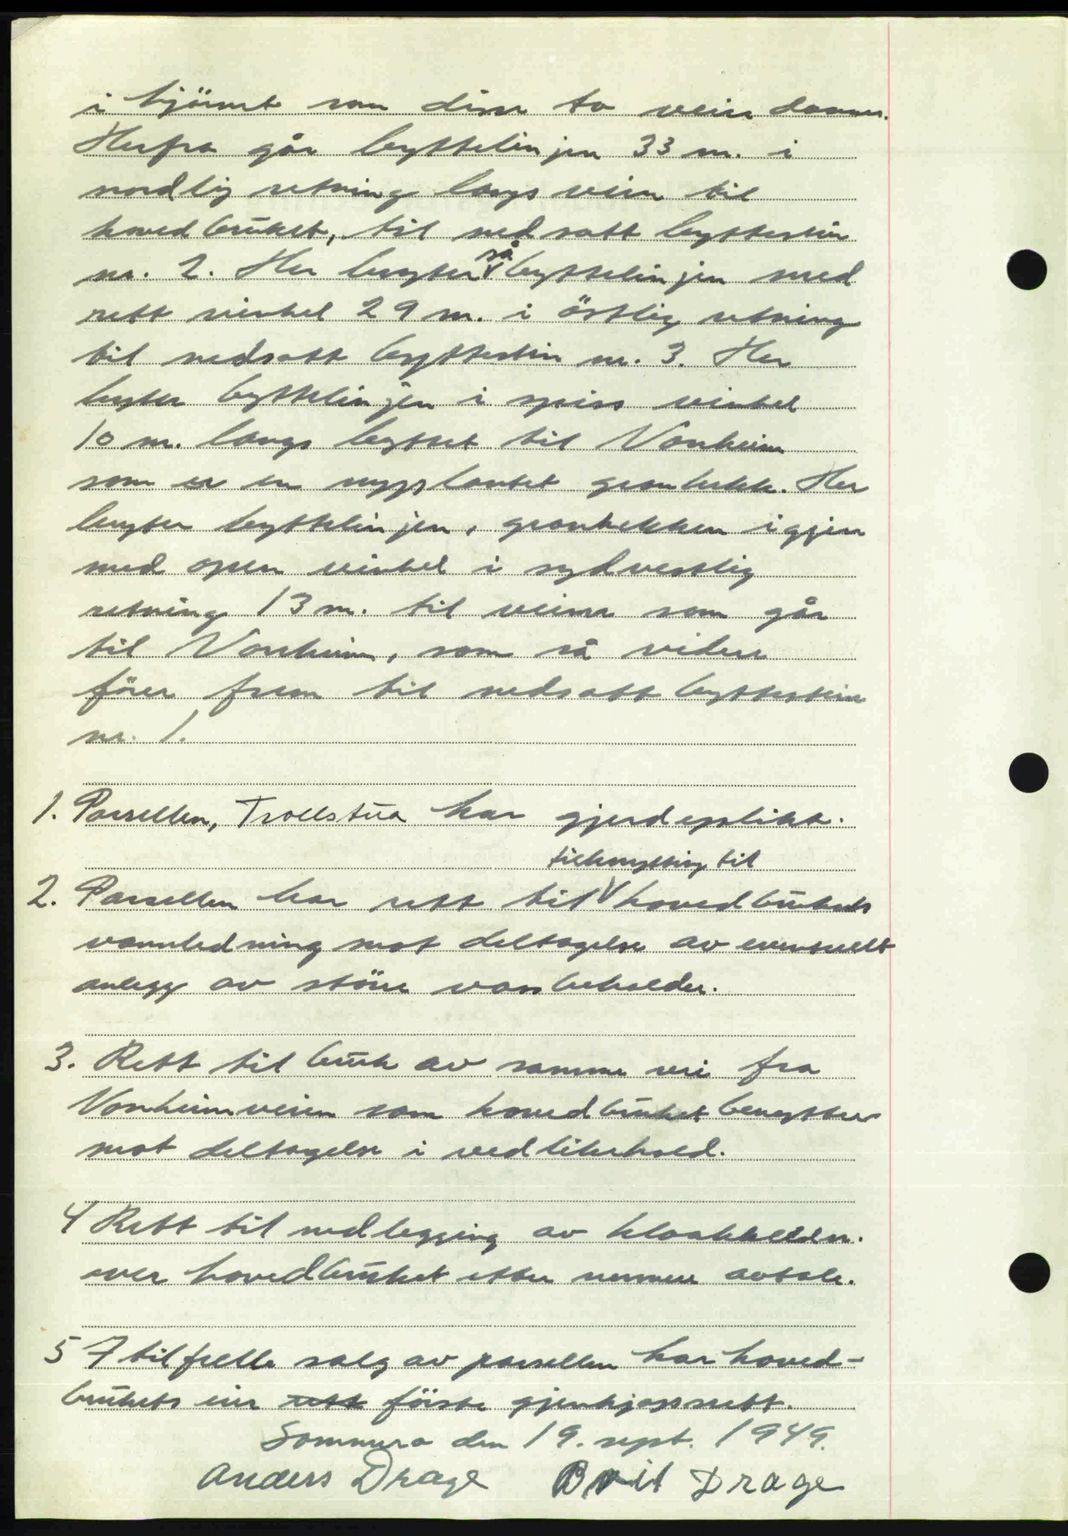 i hjörnet som disse to veier danner.
Herfra går byttelinjen 33 m. i
nordlig retning langs veien til
hovedbruket, til nedsatt byttestein
nr. 2. Her bryter så byttelinjen med
rett vinkel 29 m. i östlig retning
til nedsatt byttestein nr. 3. Her
bryter byttelinjen i spiss vinkel
10 m. langs byttet til Vonheim
som er en nyplantet granhekk. Her
bryter byttelinjen, granhekken igjen
med open vinkel i sydvestlig
retning 13 m. til veien som går
til Vonheim, som så videre
förer frem til nedsatt byttestein
nr. 1.
1. Parsellen, Trollstua har gjerdeplikt.
tilknytting til
2. Parsellen har rett til hovedbrukets
vannledning mot deltagelse av eventuelt
anlegg av större vannbeholder.
3. Rett til bruk av samme vei fra
Vonheimveien som hovedbruket benytter
mot deltagelse i vedlikehold.
4 Rett til nedlegging av kloakkledn.
over hovedbruket etter nermere avtale.
5 I tilfelle salg av parsellen har hoved-
brukets eier rett förste gjenkjøpsrett.
Sommero den 19. sept. 1949.
Anders Drage Brit Drage